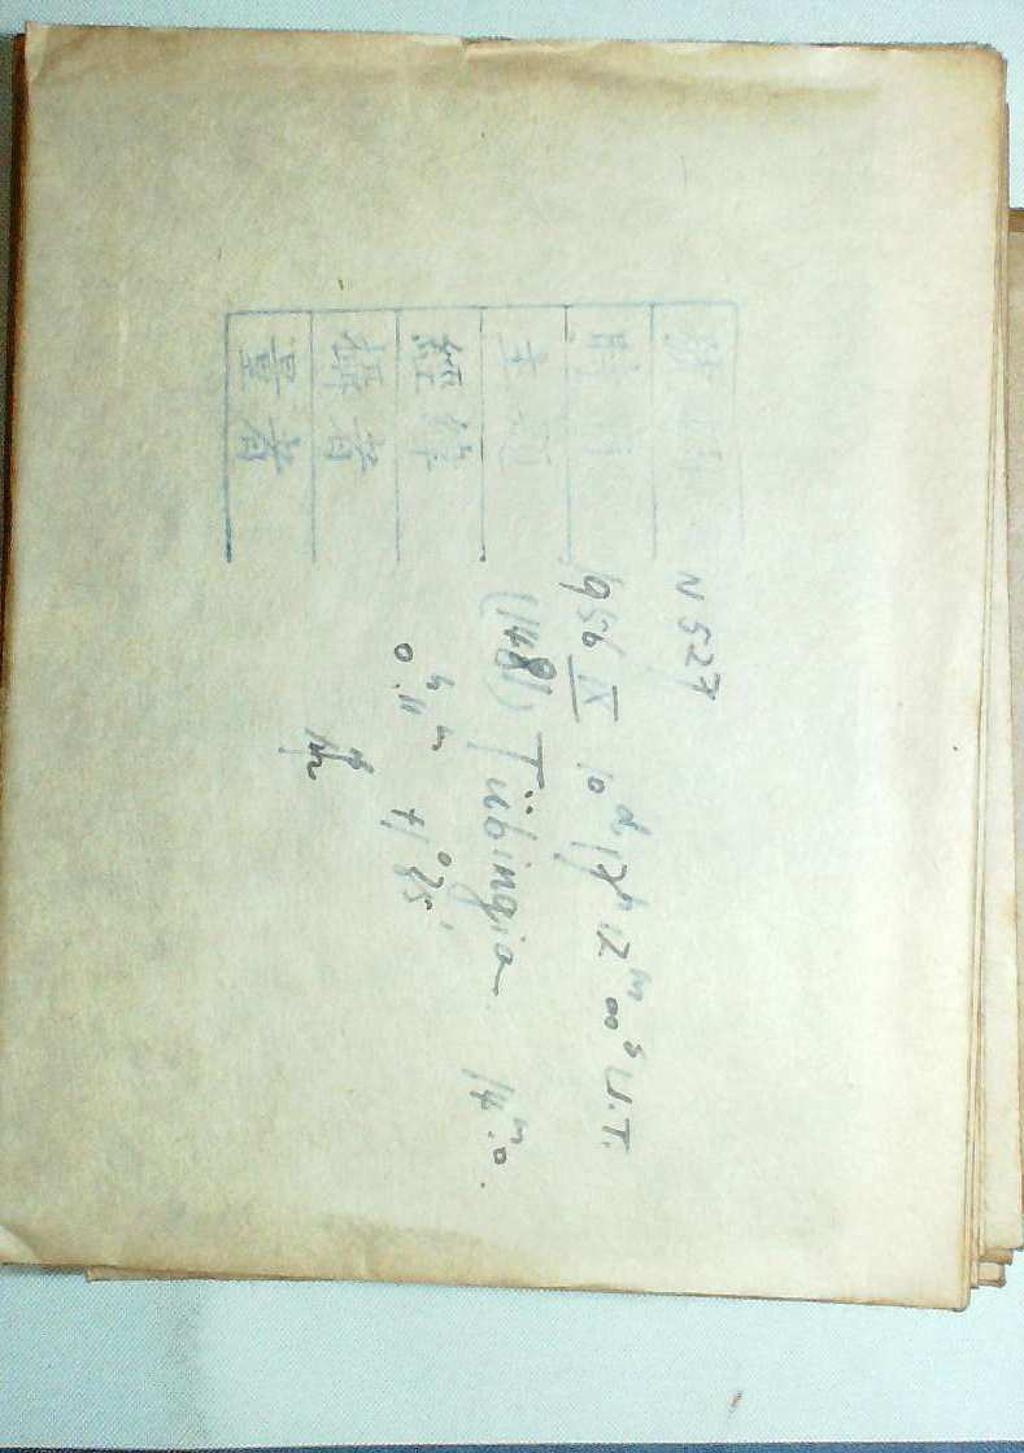 號碼 N 527
時刻 1956 IX 10ᵈ 17ʰ 12ᵐ 00ˢ U.T.
主題 (1481) Tübingia 14ᵐ.0
經緯 0ʰ.11ᵐ +1°25′
攝者
量者